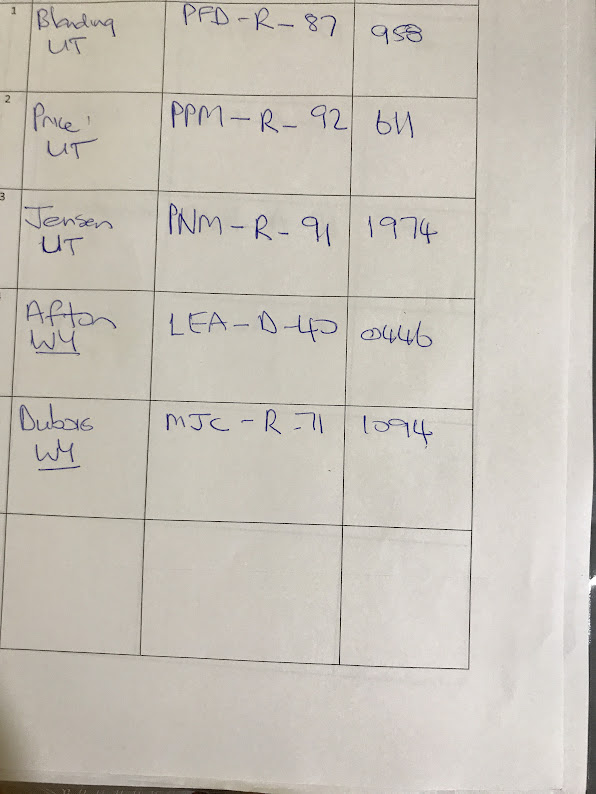 1 Blanding PFD-R-87 958
UT
2 Price PPM-R-92 611
UT
3 Jensen PNM-R-91 1974
UT
Afton LEA-D-40 0446
WY
Dubois MJC-R-71 1094
WY